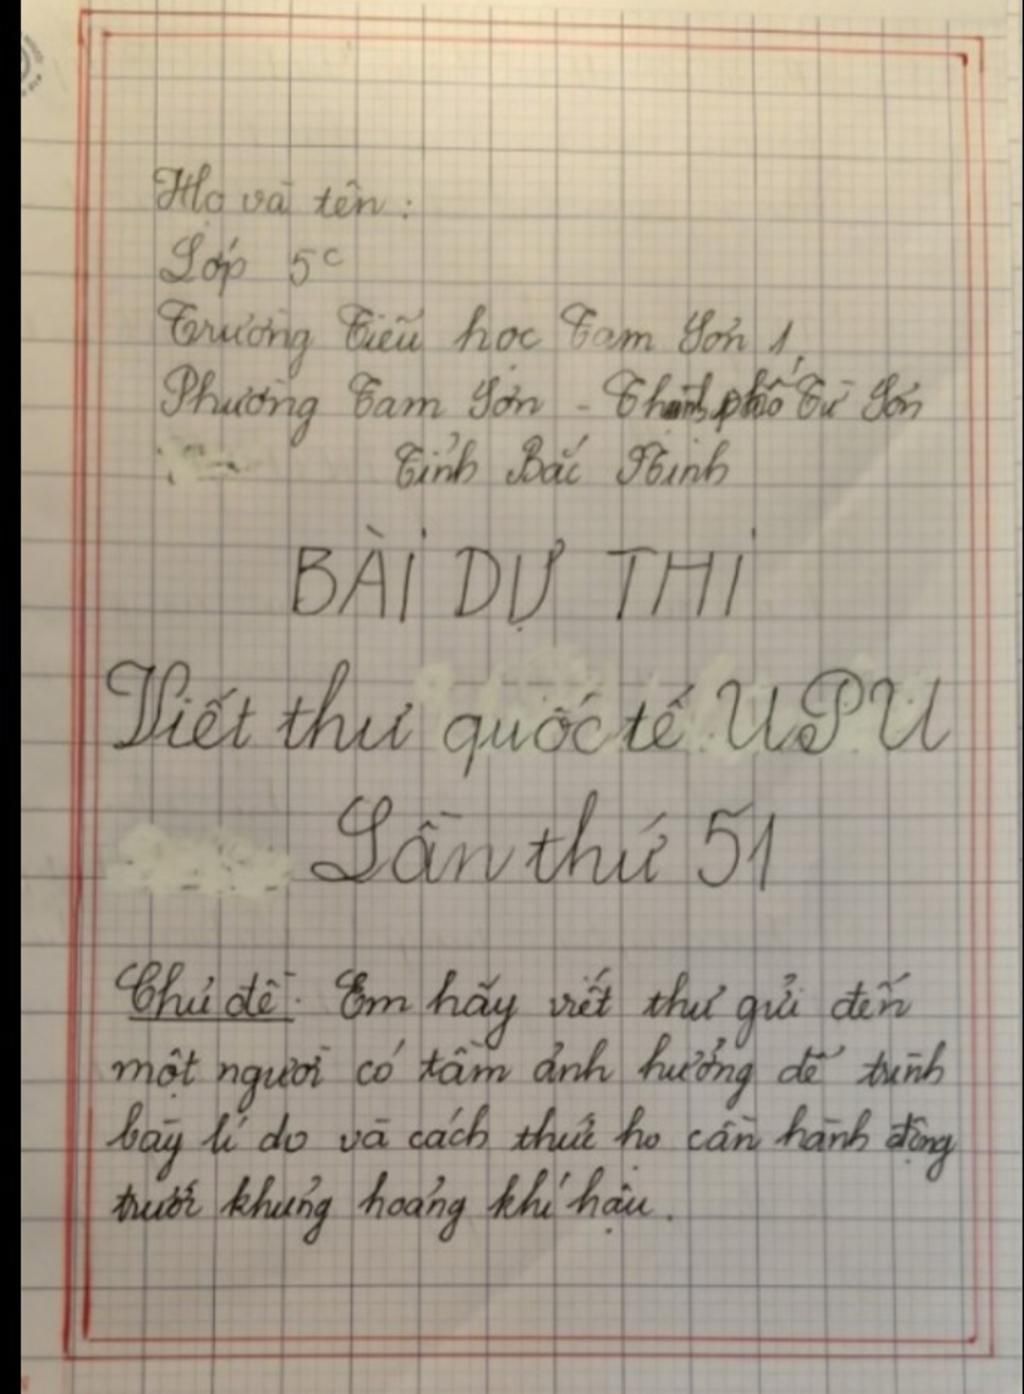 Họ và tên :
Lớp 5C
Trường Tiểu học Tam Sơn 1,
Phường Tam Sơn - Thành phố Từ Sơn
Tỉnh Bắc Ninh
BÀI DỰ THI
Viết thư quốc tế UPU
Lần thứ 51
Chủ đề: Em hãy viết thư gửi đến
một người có tầm ảnh hưởng để trình
bày lí do và cách thức họ cần hành động
trước khủng hoảng khí hậu.